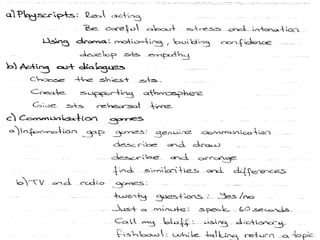 a) Playscripts: Real acting
Be careful about stress and intonation
Using drama: motivating, building confidence
develop sts empathy
b) Acting out dialogues
Choose the shiest sts.
Create supporting athmosphere
Give sts rehearsal time
c) Communication games
a) Information gap games: genuine communication
describe and draw
describe and arrange
find similarities and differences
b) TV and radio games:
twenty questions: Yes/no
Just a minute: speak 60 seconds.
Call my bluff: using dictionary.
fishbowl: while talking return a topic